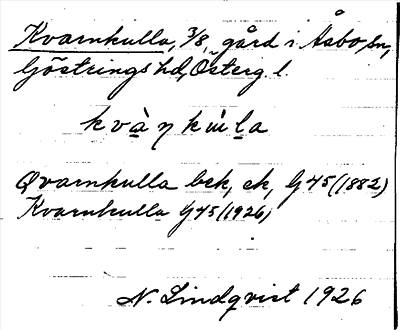 Kvarnkulla, 3/8, gård i Åsbo sn,
Göstrings hd, Österg l.
kvàŋkùla
Qvarnkulla bek, ek, G45 (1882)
Kvarnkulla G45 (1926)
N. Lindqvist 1926